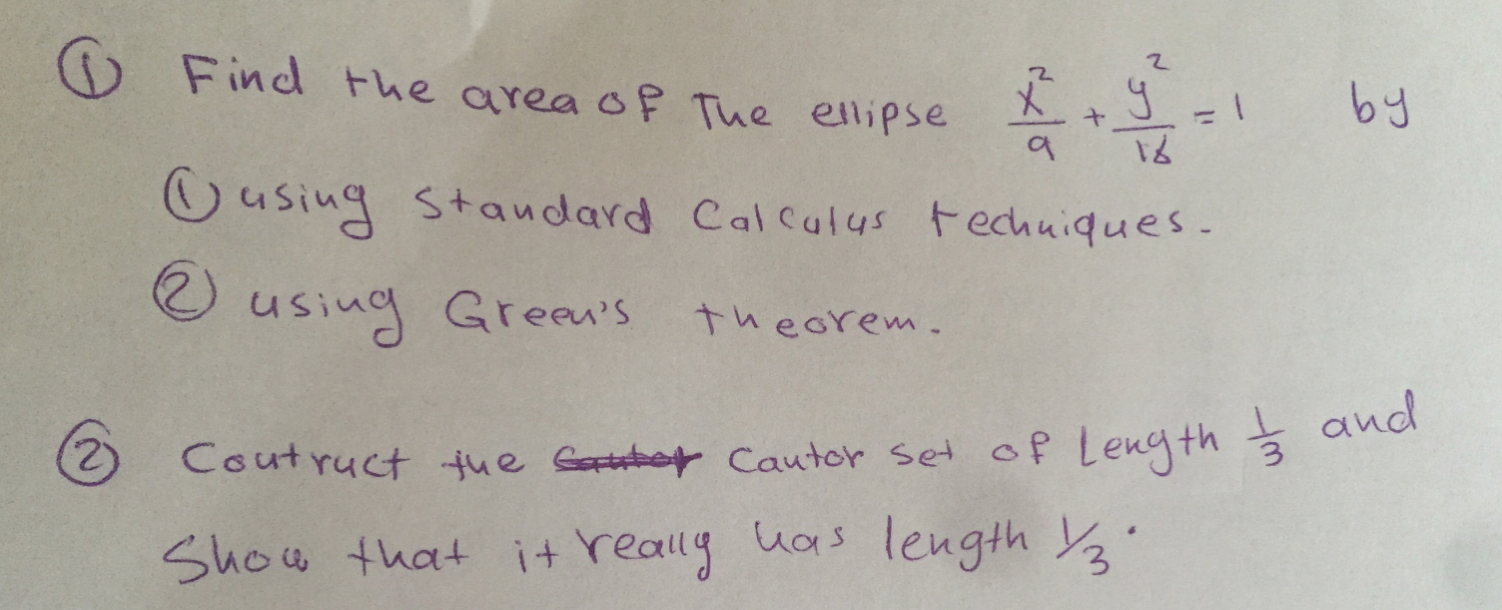 ① Find the area of The ellipse x²/9 + y²/16 = 1 by
① using standard Calculus techniques.
② using Green's theorem.
② Contruct the Cantor set of Length 1/3 and
Show that it really has length 1/3.